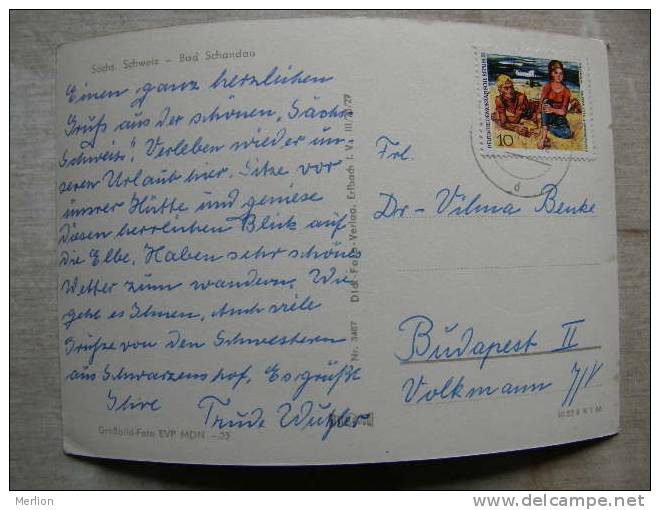 Sächs. Schweiz – Bad Schandau
Einen ganz herzlichen
Gruß aus der schönen „Sächs.
Schweiz“. Verleben wieder un-
seren Urlaub hier. Sitze vor
unsrer Hütte und geniese
diesen herrlichen Blick auf
die Elbe. Haben sehr schönes
Wetter zum wandern. Wie
geht es Ihnen. Auch viele
Grüße von den Schwestern
aus Schwarzenshof. Es grüßt
Ihre Trude
Großbild-Foto EVP MDN –,25
Nr. 3467 Dick-Foto-Verlag, Erlbach i. V.
DEUTSCHE DEMOKRATISCHE REPUBLIK
10
Frl.
Dr. Vilma Benke
Budapest II
Volkmann
Merlion
www.delcampe.net